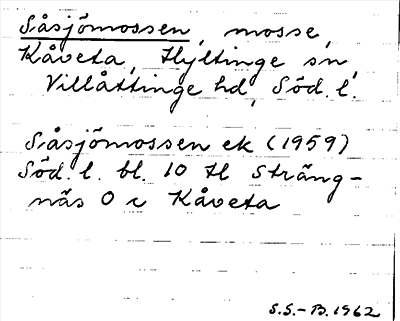 Såsjömossen, mosse,
Kåveta, Hyltinge sn,
Villåttinge hd, Söd. l.
Såsjömossen ek (1959)
Söd. l. bl. 10 H Sträng-
näs O c Kåveta
S.S.-B. 1962